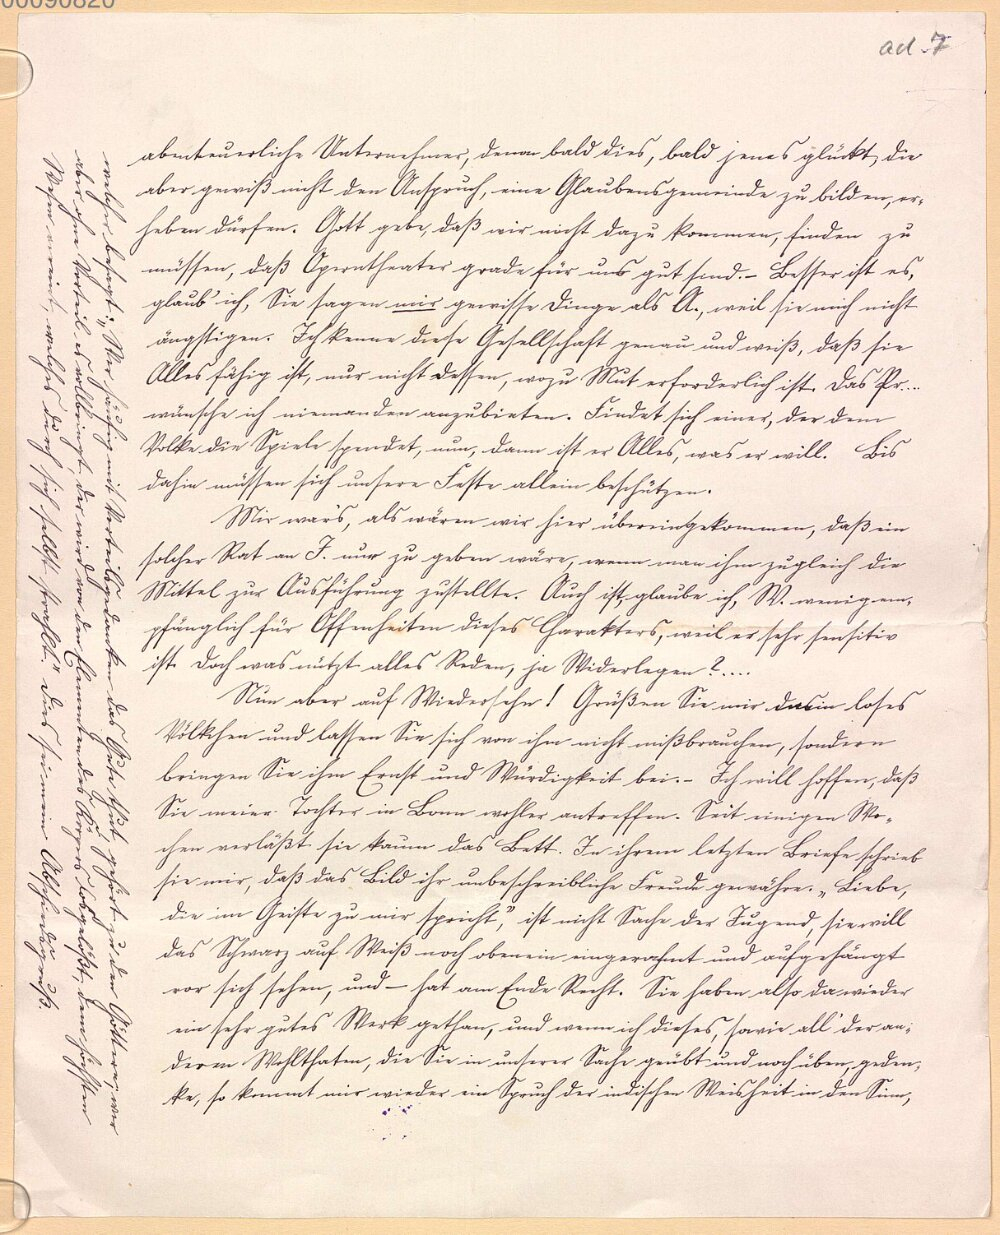 00090820
ad. 7
abenteuerliche Unternehmer, denen bald dies, bald jenes glückt, die
aber gewiß nicht den Anspruch, eine Glaubensgemeinde zu bilden, er-
heben dürfen. Gott gebe, daß wir nicht dazu kommen, finden zu
müssen, daß Operntheater grade für uns gut sind. – Besser ist es,
glaub' ich, Sie sagen mir gewisse Dinge als A., weil sie mich nicht
ängstigen. Ich kenne diese Gesellschaft genau und weiß, daß sie
Alles fähig ist, nur nicht dessen, wozu Mut erforderlich ist. Das Pr...
wünsche ich niemanden anzubieten. Findet sich einer, der dem
Volke die Spiele spendet, nun, dann ist er Alles, was er will. Bis
dahin müssen sich unsere Feste allein beschützen.
Mir war's, als wären wir hier übereingekommen, daß ein
solcher Rat an F. nur zu geben wäre, wenn man ihm zugleich die
Mittel zur Ausführung zustellte. Auch ist, glaube ich, W. wenig em-
pfänglich für Offenheiten dieses Charakters, weil er sehr sensitiv
ist. Doch was nützt alles Reden, ja Widerlegen?....
Nun aber auf Wiedersehn! Grüßen Sie mir das in loses
Völkchen und lassen Sie sich von ihm nicht mißbrauchen, sondern
bringen Sie ihm Ernst und Würdigkeit bei. – Ich will hoffen, daß
Sie meine Tochter in Bonn wohler antreffen. Seit einigen Wo-
chen verläßt sie kaum das Bett. In ihrem letzten Briefe schrieb
sie mir, daß das Bild ihr unbeschreibliche Freude gewähre. „Liebe,
die im Geiste zu mir spricht," ist nicht Sache der Jugend, sie will
das Schwarz auf Weiß noch obenein eingerahmt und aufgehängt
vor sich sehen, und – hat am Ende Recht. Sie haben also da wieder
ein sehr gutes Werk gethan, und wenn ich dieses, sowie all' der an-
deren Wohlthaten, die Sie in unserer Sache geübt und noch üben, geden-
ke, so kommt mir wieder ein Spruch der indischen Weisheit in den Sinn,
welcher besagt: „Wer häufig mit Vorteilsgedanken das Gute thut, gehört zu den Göttern; wer
aber ohne Vorteil es vollbringt, der wird von den Elementen des Körpers losgelöst, dem höchsten
Wesen vereint, welches durch sich selbst strahlt." Dies sei mein Abschiedsgruß.